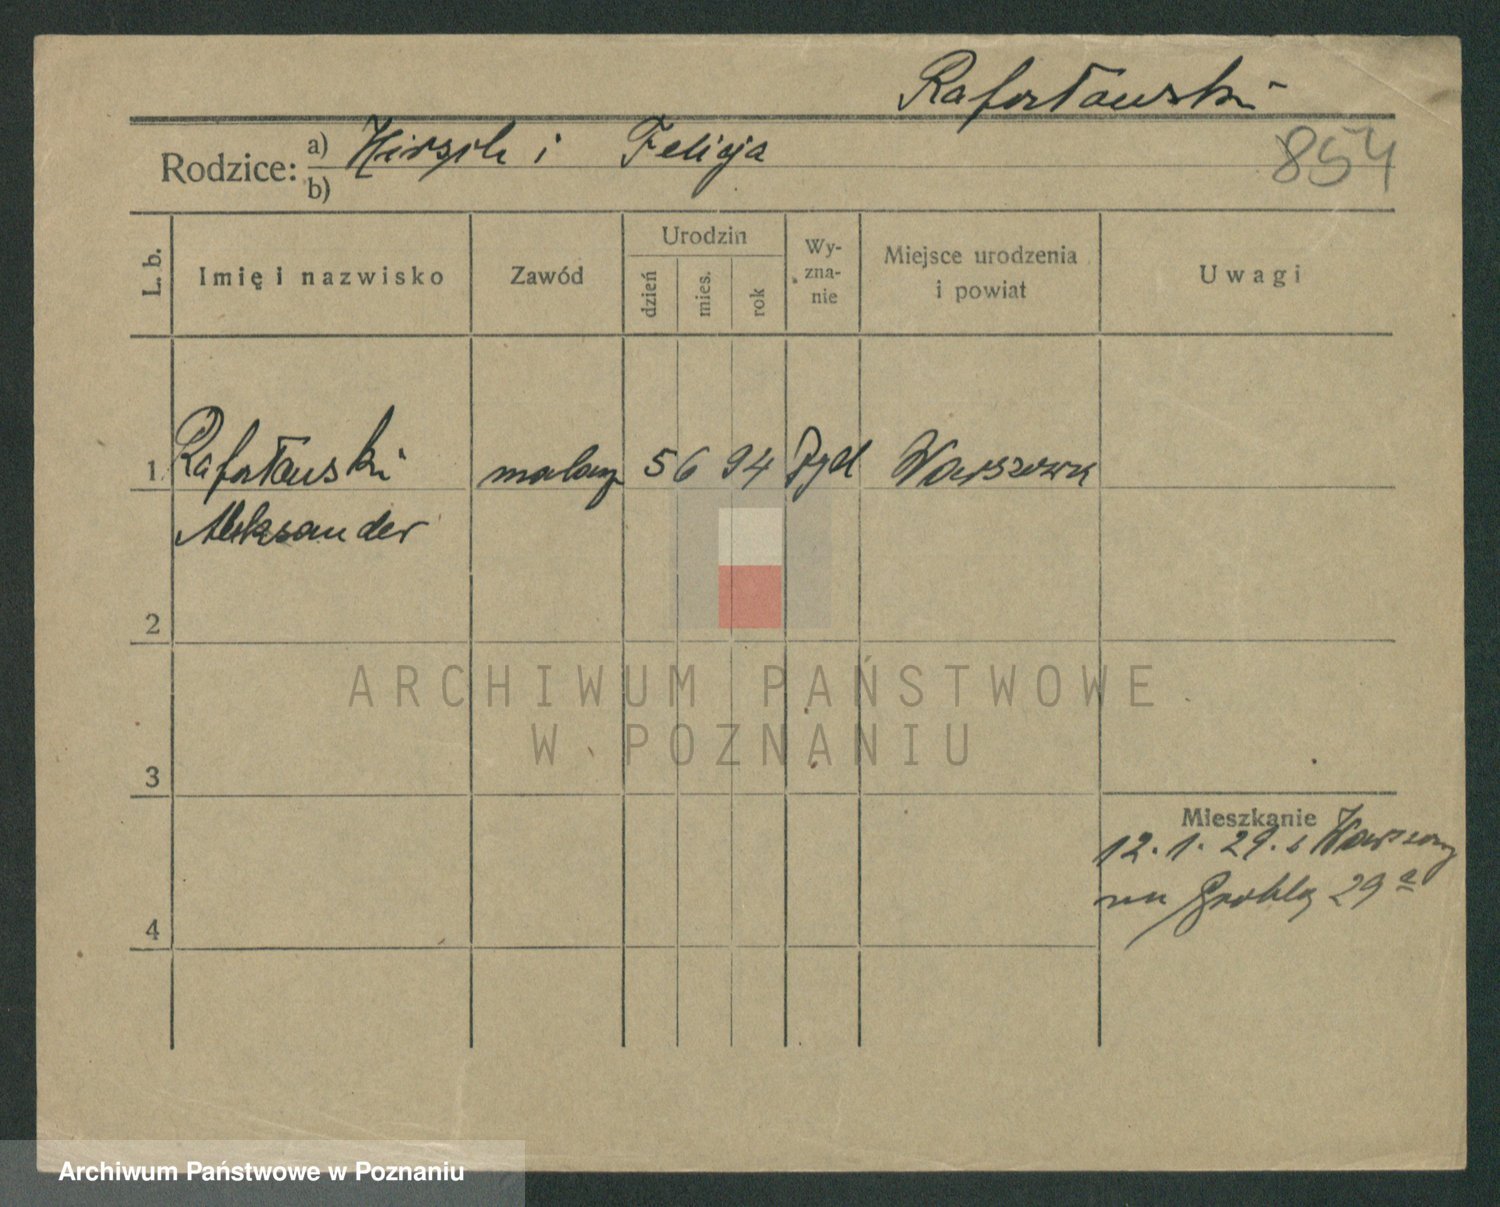 Rafortowski
Rodzice: a) Hirsch i Felicja
b)
854
L. b.
Imię i nazwisko
Zawód
Urodzin
dzień
mies.
rok
Wy-
zna-
nie
Miejsce urodzenia
i powiat
Uwagi
1 Rafortowski malarz 5 6 94 Żyd Warszawa
Aleksander
2
3
4
Mieszkanie
12.1.29. z Warszawy
na Groblę 29ᵃ
ARCHIWUM PAŃSTWOWE
W POZNANIU
Archiwum Państwowe w Poznaniu